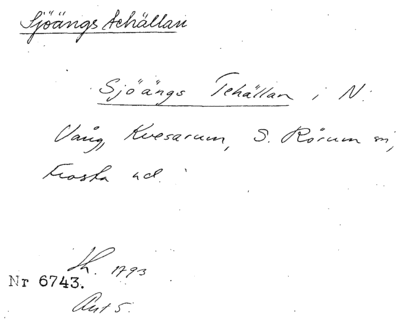 Sjöängs tehällan
Sjöängs Tehällan i N.
Vång, Kvesarum, S. Rörum sn,
Frosta hd.
Sk. 1793
Nr 6743.
Ant 5.